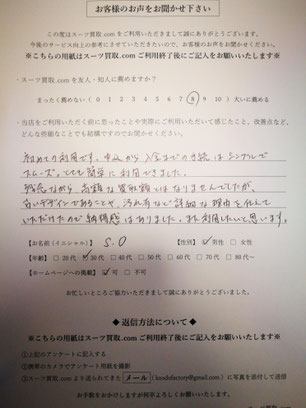 お客様のお声をお聞かせ下さい
この度はスーツ買取.comをご利用いただきまして誠にありがとうございます。
今後のサービス向上の参考にさせていただきたいので、お客様の声をお聞かせください。
※こちらの用紙はスーツ買取.comご利用終了後にご記入をお願いいたします※
・スーツ買取.comを友人・知人に薦めますか？
まったく薦めない（ 0 1 2 3 4 5 6 7 8 9 10 ）大いに薦める
・当店をご利用いただく前に思ったことや実際にご利用いただいて感じたこと、改善点など、
どんな些細なことでも結構ですのでお聞かせください。
初めての利用です。申込から入金までの手続はシンプルで
スムーズ。とても簡単に利用できました。
残念ながら高額な買取額とはなりませんでしたが、
古いデザインであることや、汚れ有など詳細な理由を伝えて
いただけたので納得感はありました。また利用したいと思います。
【お名前（イニシャル）】 S.O 【性別】 ☑男性 □女性
【年齢】 □20代 ☑30代 □40代 □50代 □60代 □70代 □80代～
【ホームページへの掲載】 ☑可 □不可
お忙しいところご協力いただきまして誠にありがとうございました。
◆ 返信方法について ◆
※こちらの用紙はスーツ買取.comご利用終了後にご記入をお願いいたします※
①上記のアンケートに記入する
②携帯のカメラでアンケート用紙を撮影
③スーツ買取.comより送られてきた メール (koodsfactory@gmail.com) に写真を添付して送信
お手数をおかけしますが何卒よろしくお願いいたします。